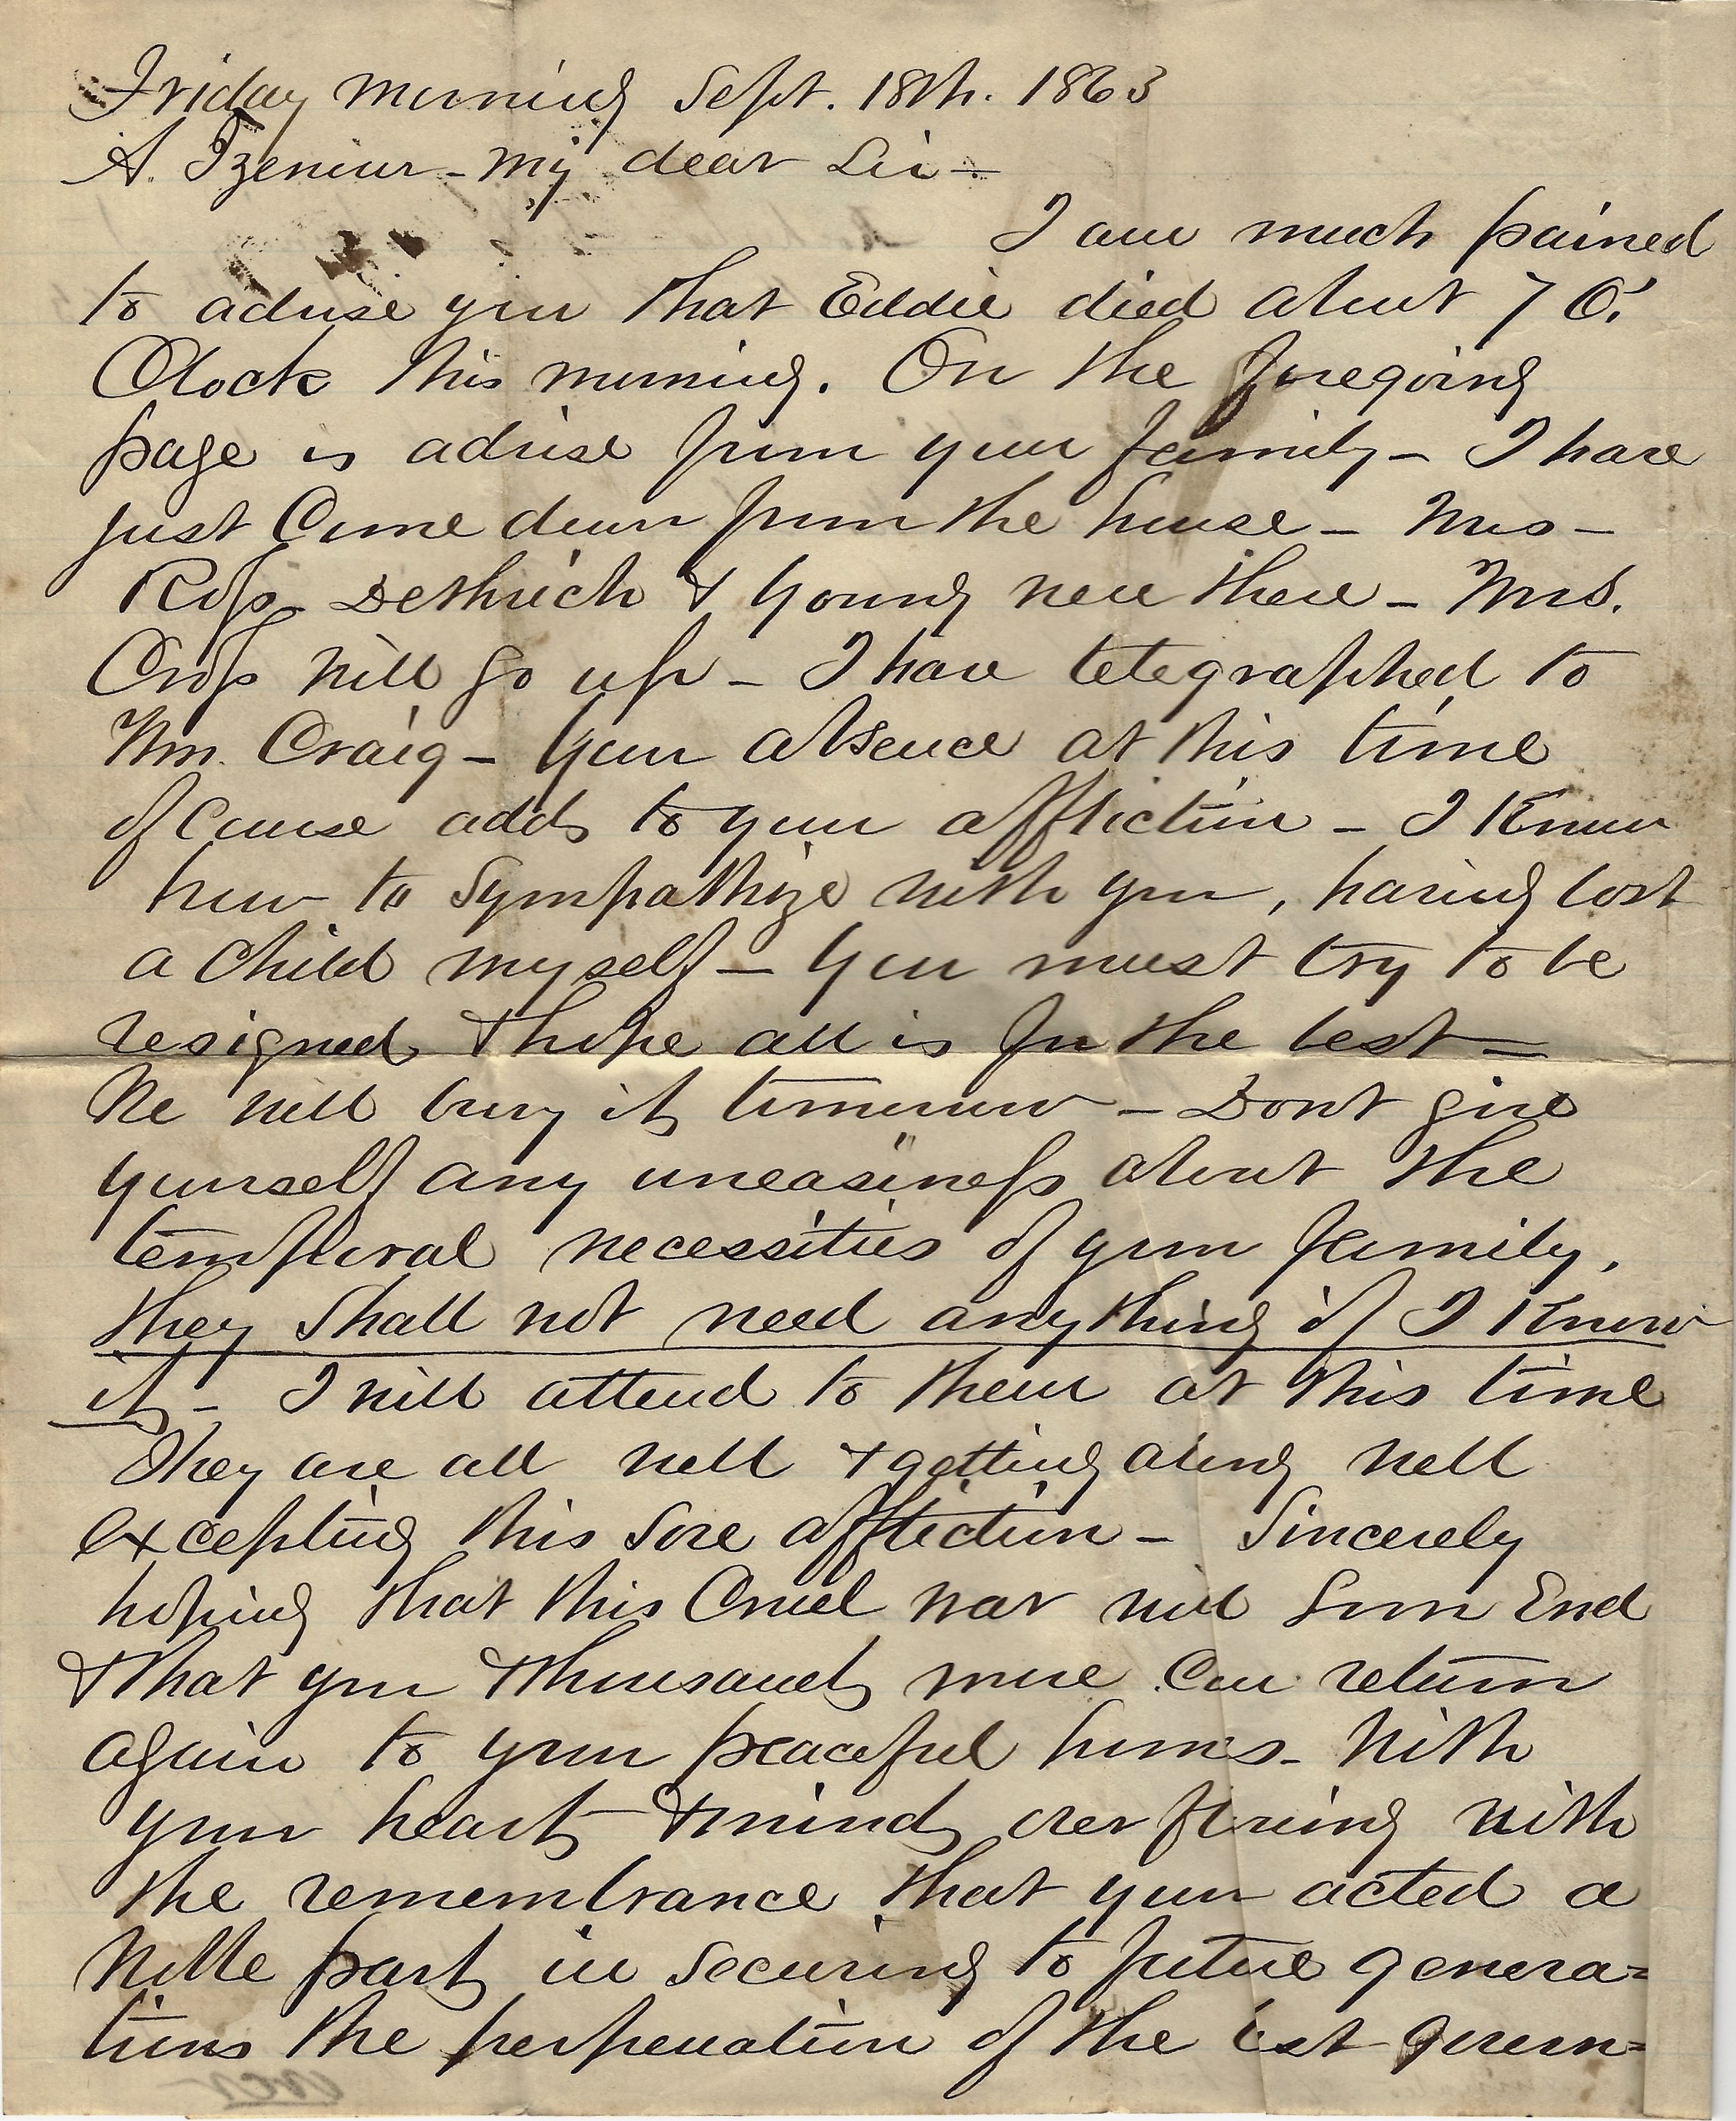 Friday morning Sept. 18th. 1863
A. Izenour - My dear Sir -
I am much pained
to advise you that Eddie died about 7 O'
Clock this morning. On the foregoing
page is advise from your family - I have
just Come down from the house - Mrs -
Ross Dethrich & Young were there - Mrs.
Cross will go up - I have telegraphed to
Wm. Craig - Your absence at this time
of Course adds to your affliction - I Know
how to Sympathize with you, having lost
a Child myself - You must try to be
resigned & hope all is for the best -
We will bury it tomorrow - Dont give
yourself any uneasiness about the
temporal necessities of your family,
they Shall not need anything if I Know
it - I will attend to them at this time
They are all well & getting along well
excepting this Sore affliction - Sincerely
hoping that this Cruel war will Soon End
& that you & thousands more Can return
again to your peaceful homes - With
your hearts & minds overflowing with
the remembrance that you acted a
Noble part in Securing to future genera=
tions the perpenation of the best govern=
over